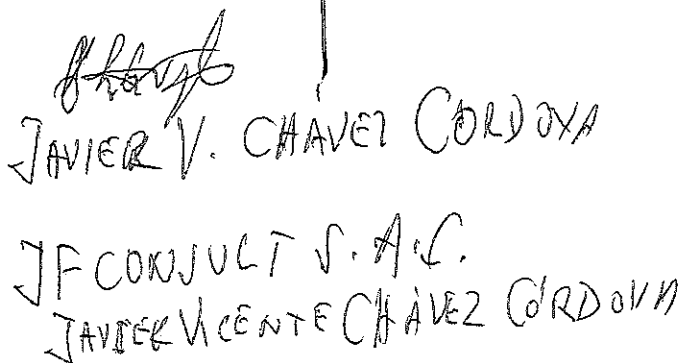 JAVIER V. CHÁVEZ CORDOVA
JF CONSULT S.A.C.
JAVIER VICENTE CHÁVEZ CÓRDOVA